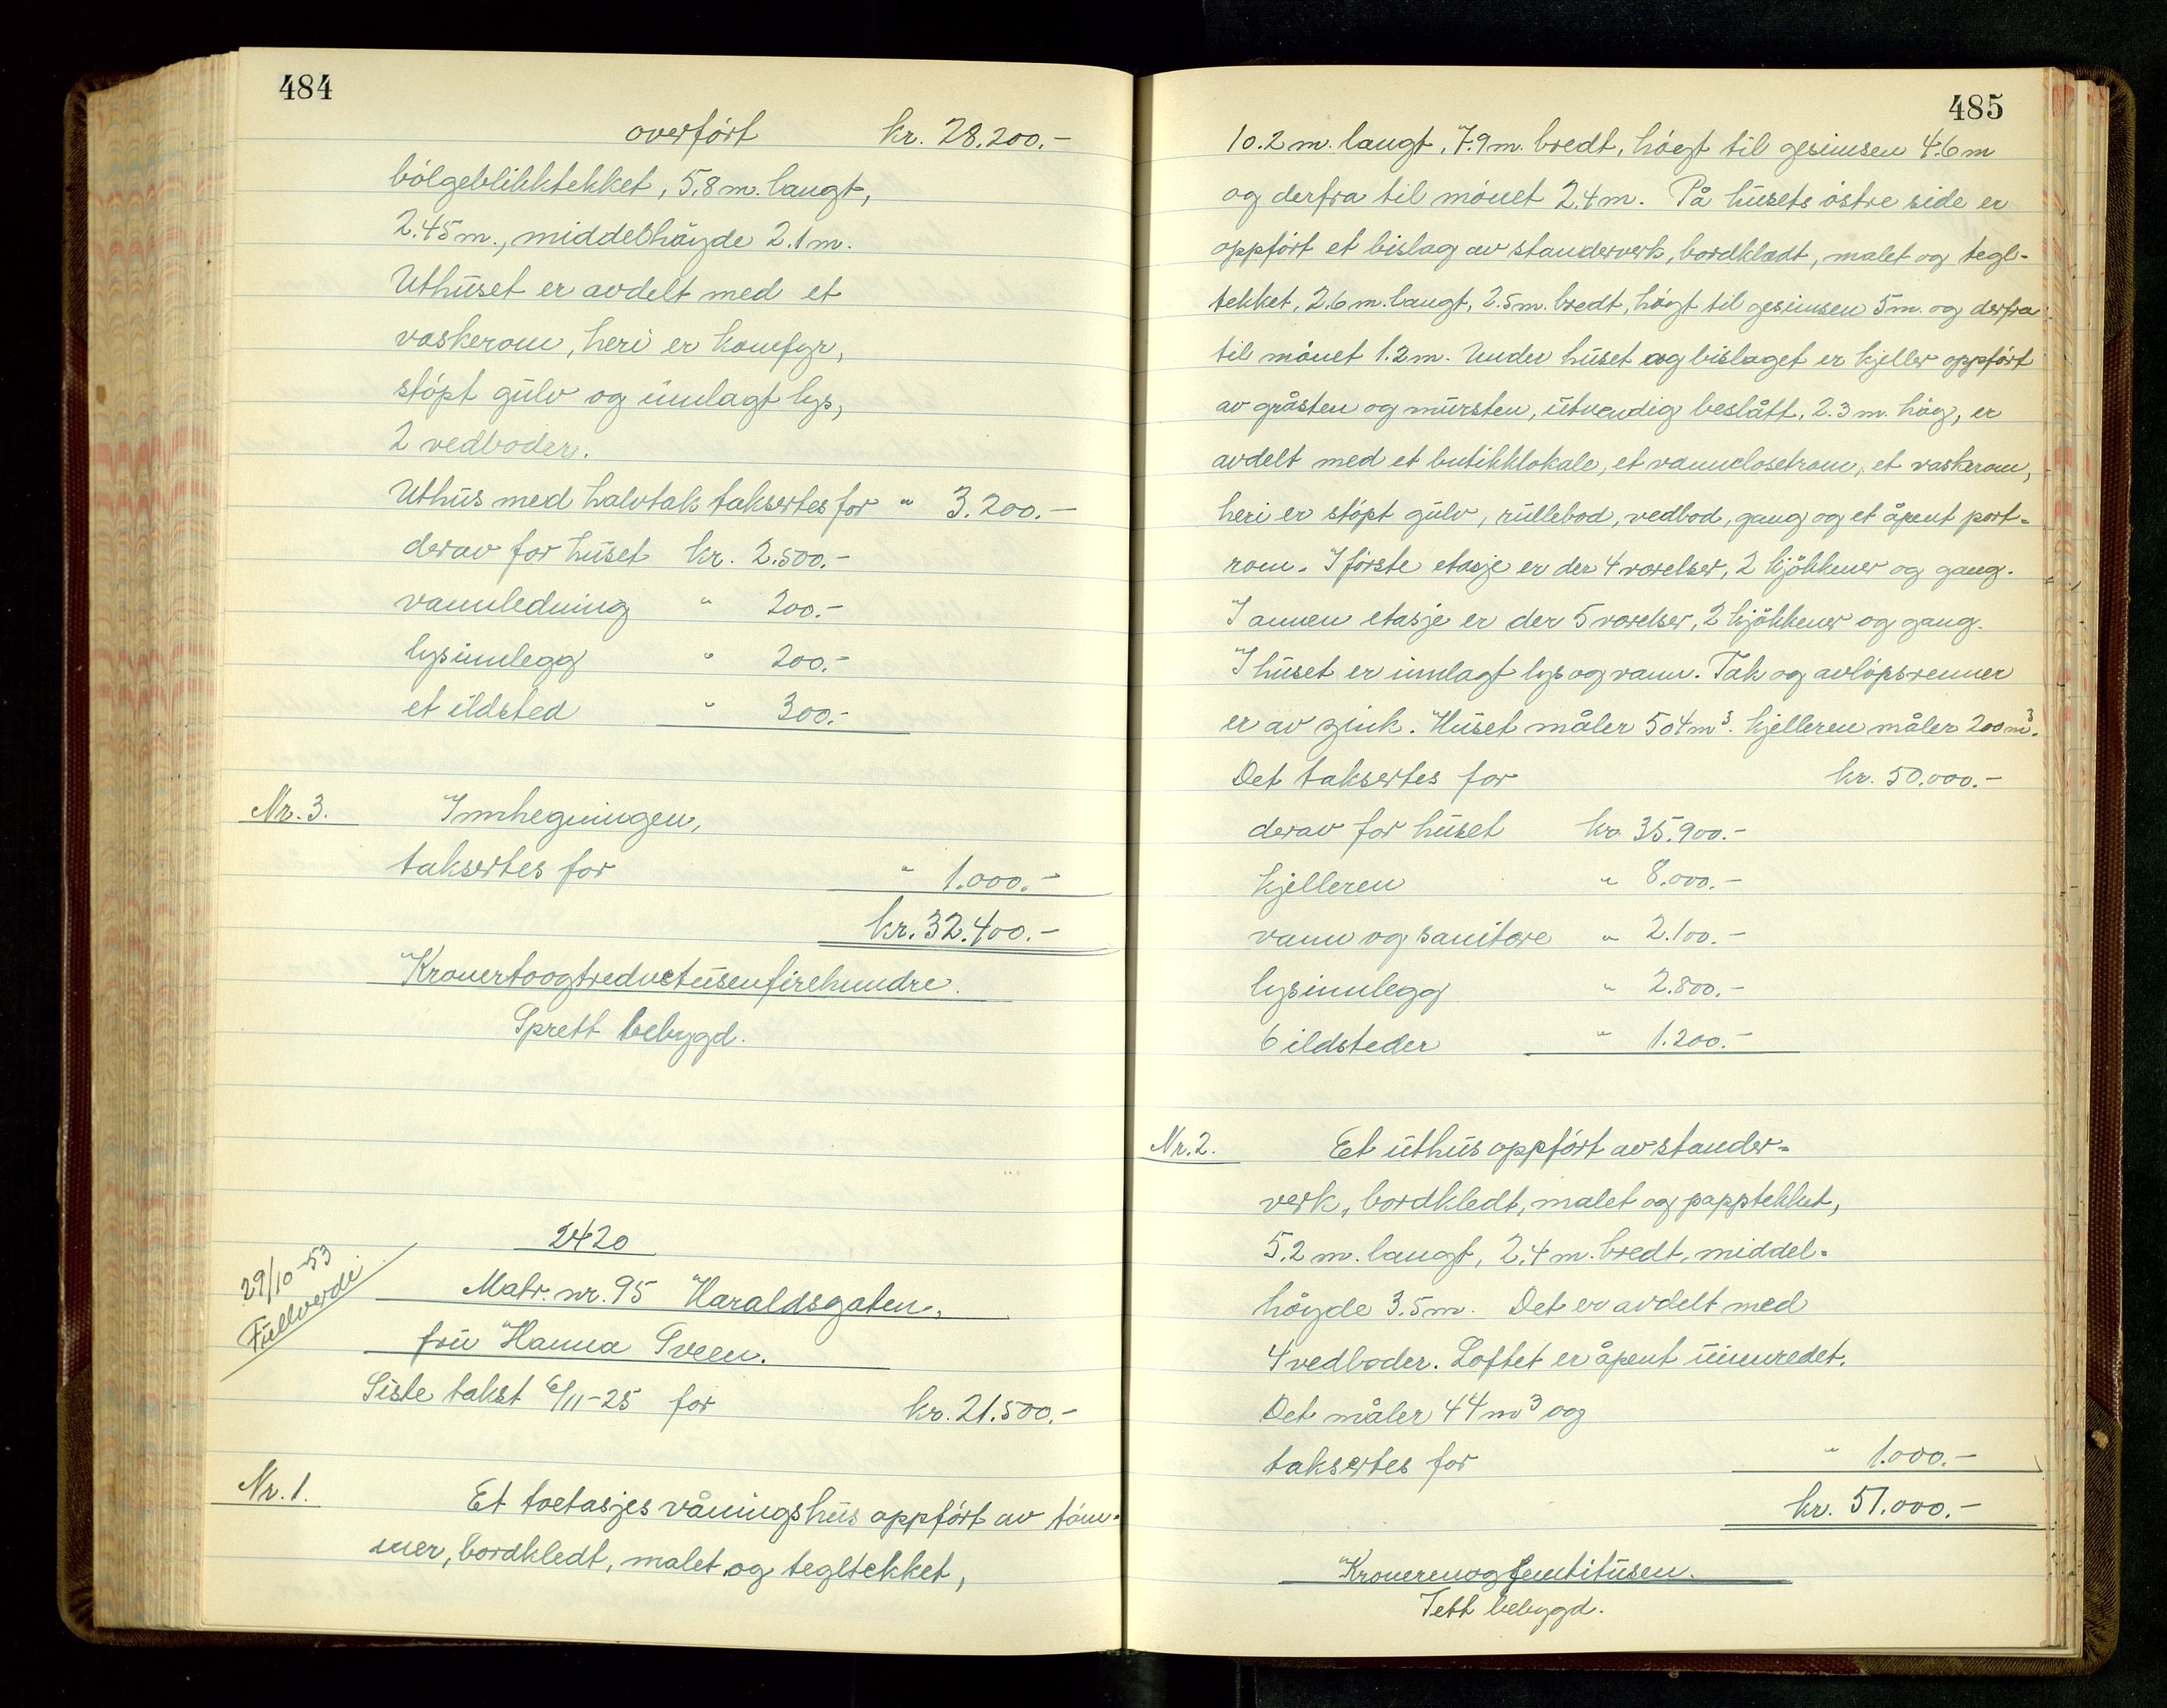 484
overført kr. 28.200.-
bølgeblikktekket, 5.8 m. langt,
2.45 m., middelhøyde 2.1 m.
Uthuset er avdelt med et
vaskerom, heri er komfyr,
støpt gulv og innlagt lys,
2 vedboder.
Uthus med halvtak taksertes for " 3.200.-
derav for huset kr. 2.500.-
vannledning " 200.-
lysinnlegg " 200.-
et ildsted " 300.-
Nr. 3. Innhegningen,
taksertes for " 1.000.-
kr. 32.400.-
Kronertoogtredvetusenfirehundre.
Sprett bebygd.
2420
29/10-53
Fullverdi
Matr. nr. 95 Haraldsgaten,
fru Hanna Sveen.
Siste takst 6/11-25 for kr. 21.500.-
Nr. 1. Et toetasjes våningshus oppført av tøm-
mer, bordkledt, malet og tegltekket,
485
10.2 m. langt, 7.9 m. bredt, høgt til gesimsen 4.6 m
og derfra til mønet 2.4 m. På husets østre side er
oppført et bislag av standerverk, bordkledt, malet og tegl-
tekket, 2.6 m. langt, 2.5 m. bredt, høgt til gesimsen 5 m. og derfra
til mønet 1.2 m. Under huset og bislaget er kjeller oppført
av gråsten og mursten, utvendig beslått, 2.3 m. høg, er
avdelt med et butikklokale, et vannclosetrom, et vaskerom,
heri er støpt gulv, rullebod, vedbod, gang og et åpent port-
rom. I første etasje er der 4 værelser, 2 kjøkkener og gang.
I annen etasje er der 5 værelser, 2 kjøkkener og gang.
I huset er innlagt lys og vann. Tak og avløpsrenner
er av zink. Huset måler 504 m³. Kjelleren måler 200 m³.
Det taksertes for kr. 50.000.-
derav for huset kr. 35.900.-
kjelleren " 8.000.-
vann og sanitære " 2.100.-
lysinnlegg " 2.800.-
6 ildsteder " 1.200.-
Nr. 2. Et uthus oppført av stander-
verk, bordkledt, malet og papptekket,
5.2 m. langt, 2.4 m. bredt, middel-
høyde 3.5 m. Det er avdelt med
4 vedboder. Loftet er åpent uinnredet.
Det måler 44 m³ og
taksertes for " 1.000.-
kr. 51.000.-
Kronerenogfemtitusen.
Tett bebygd.